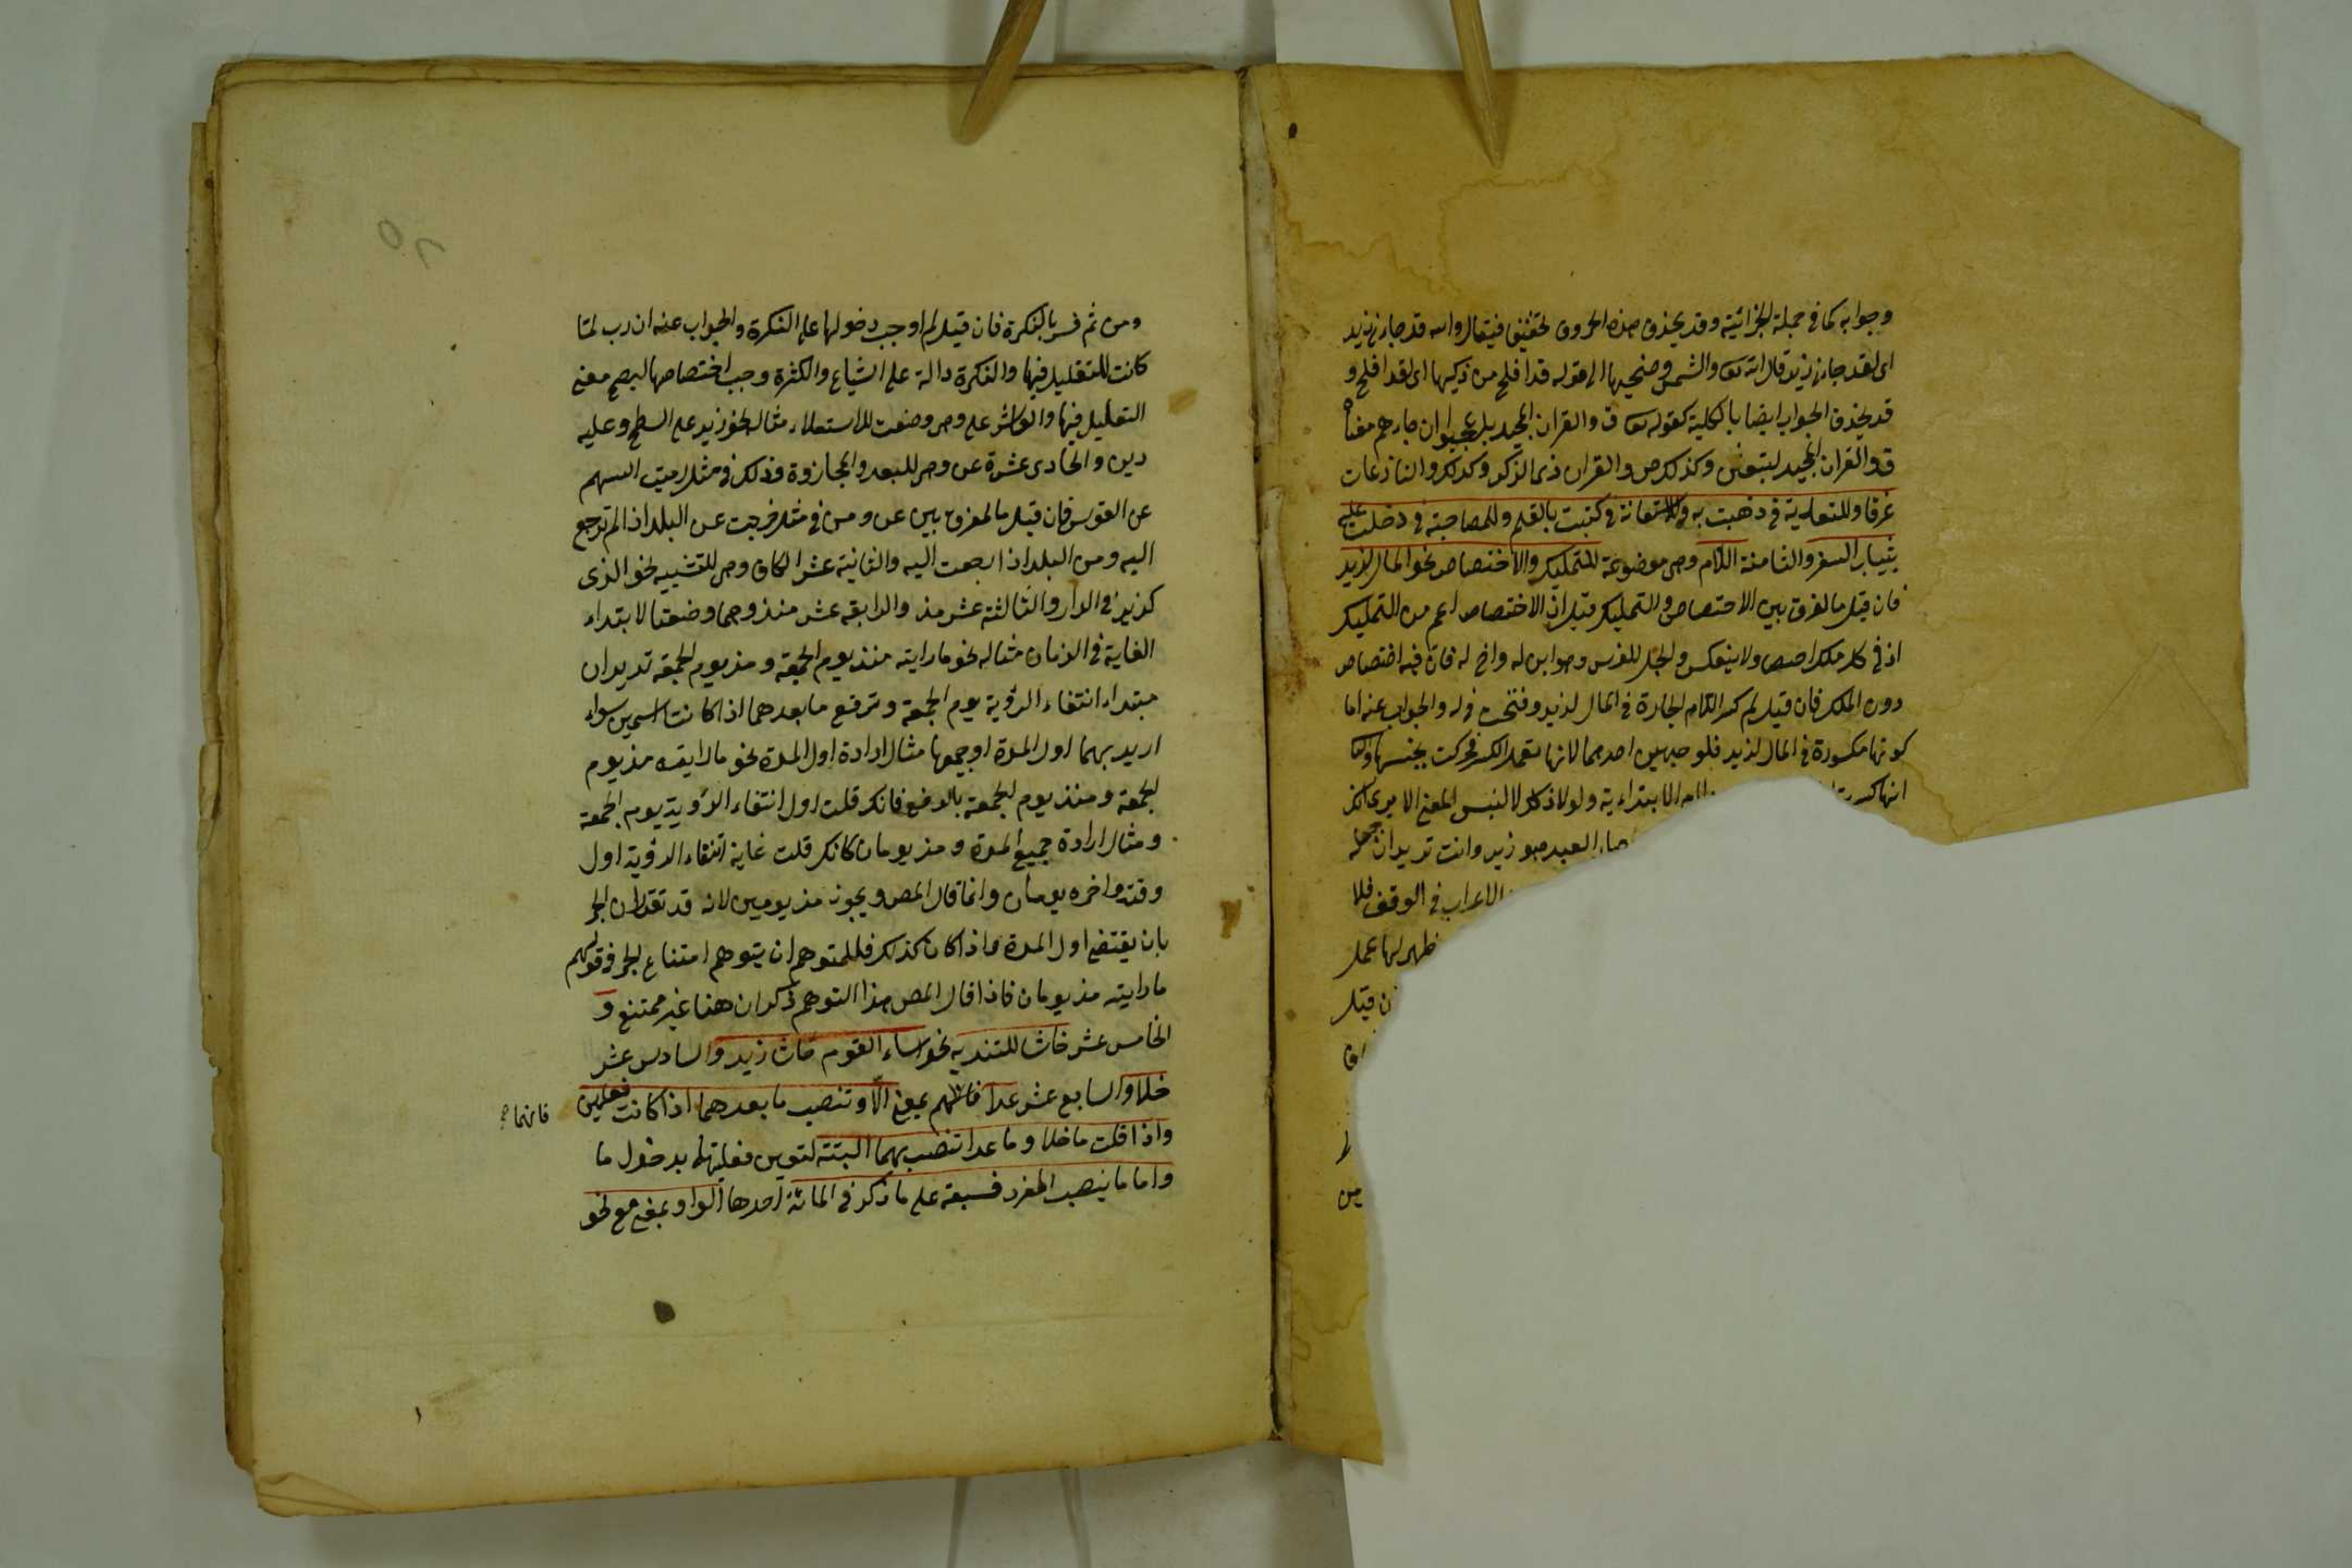 وجوابه كما في جملة الجزائية وقد يحذف هذه الحروف لتخفيف فيقال والله قد جاءني زيد
اى لقد جاءني زيد قال الله تعا والشمس وضحيها الى قوله قد افلح من زكيها اى لقد افلح و
قد يحذف الجواب ايضا بالكلية كقوله تعا ق والقران المجيد بل عجبوا ان جاءهم معناه
ق والقران المجيد لتبعثن وكذلك ص والقران ذى الذكر وكذلك والنازعات
غرقا وللتعدية في ذهبت به وللاستعانة في كتبت بالقلم وللمصاحبة في دخلت عليه
بثياب السفر والثامنة اللام وهى موضوعة للتمليك والاختصاص نحو المال لزيد
فان قيل ما الفرق بين الاختصاص والتمليك قيل ان الاختصاص اعم من التمليك
اذ في كل ملك اختصاص ولا ينعكس والجل للفرس وهو ابن له واخ له فان فيه اختصاص
دون الملك فان قيل لم كسر اللام الجارة في المال لزيد وفتحت في له والجواب عنه اما
كونها مكسورة في المال لزيد فلوجهين احدهما لانها تعمل الكسر فحركت بجنسها
انها كسرت اللام الابتدائية ولولا ذلك لالتبس المعنى الا يرى انك
العبد هو زيد وانت تريد ان
الاعراب في الوقف فلا
ظهر لها عمل
ن قيل
من
ومن ثم فسر بالنكرة فان قيل لم اوجب دخولها على النكرة والجواب عنه ان رب لما
كانت للتقليل فيها والنكرة دالة على الشياع والكثرة وجب اختصاصها ليصح معنى
التقليل فيها والعاشر على وهى وضعت للاستعلاء مثاله نحو زيد على السطح وعليه
دين والحادى عشرة عن وهى للبعد والمجاوزة وذلك في مثل رميت السهم
عن القوس فان قيل ما الفرق بين عن ومن في مثل خرجت عن البلد اذا لم ترجع
اليه ومن البلد اذا رجعت اليه والثانية عشر الكاف وهى للتشبيه نحو الذى
كزيد في الدار والثالثة عشر مذ والرابعة عشر منذ وهما وضعتا لابتداء
الغاية في الزمان مثاله نحو ما رايته منذ يوم الجمعة ومذ يوم الجمعة تريد ان
مبتداء انتفاء الرؤية يوم الجمعة وترفع ما بعدهما اذا كانت اسمين سواء
اريد بهما اول المدة او جميعها مثال ارادة اول المدة نحو ما رايته مذ يوم
الجمعة ومنذ يوم الجمعة بالرفع فانك قلت اول انتفاء الرؤية يوم الجمعة
ومثال ارادة جميع المدة ومذ يومان كانك قلت غاية انتفاء الرؤية اول
وقته واخره يومان وانما قال المص ويجوز مذ يومين لانه قد تقدم ان الجر
بان يقتضى اول المدة واذا كان كذلك فللمتوهم ان يتوهم امتناع الجر في قولهم
ما رايته مذ يومان فاذا قال المص هذا التوهم ذكر ان هنا غير ممتنع و
الخامس عشر حاشا للتنزيه نحو اساء القوم حاشا زيد والسادس عشر
خلا والسابع عشر عدا بمعنى الا وتنصب ما بعدهما اذا كانت فعلين
فانهما
واذا قلت ما خلا وما عدا تنصب بهما البتة لتعين فعليتهما بدخول ما
واما ما ينصب المفرد فسبعة على ما ذكر في المائة احدها الواو بمعنى مع نحو